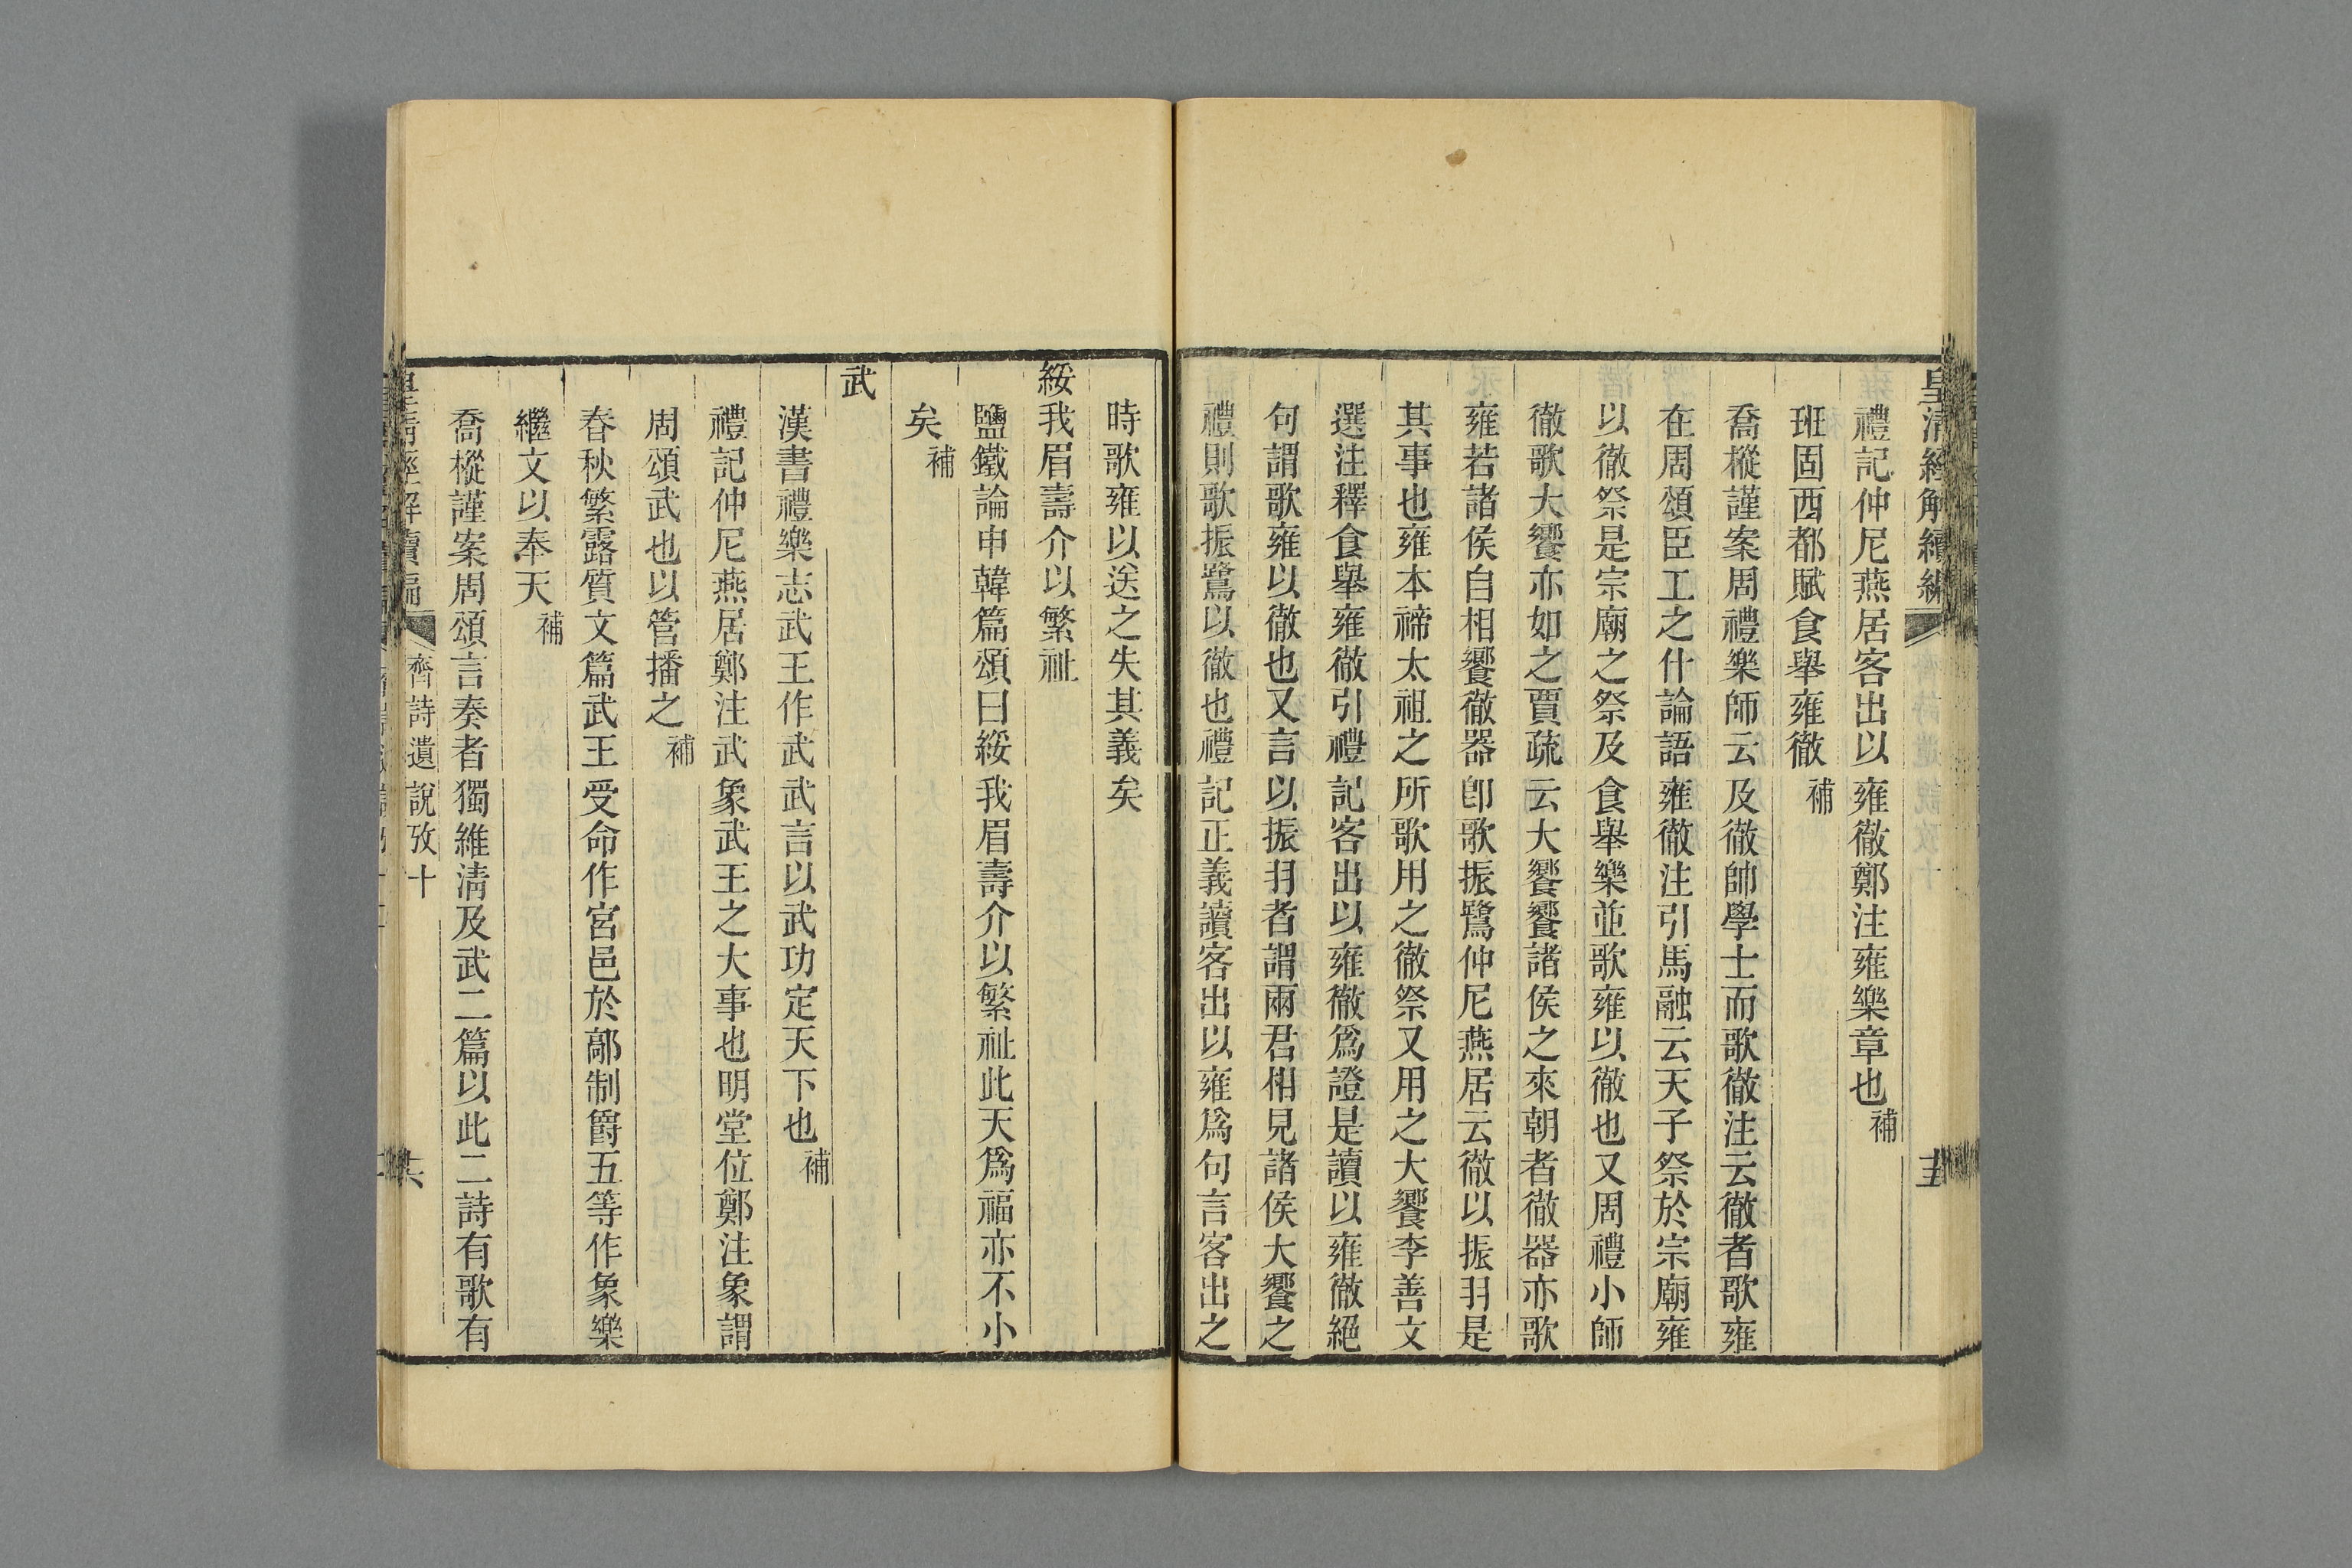 皇清經解續編
禮記仲尼燕居客出以雍徹鄭注雍樂章也補
班固西都賦食舉雍徹補
喬樅謹案周禮樂師云及徹帥學士而歌徹注云徹者歌雍
在周頌臣工之什論語雍徹注引馬融云天子祭於宗廟雍
以徹祭是宗廟之祭及食舉樂並歌雍以徹也又周禮小師
徹歌大饗亦如之賈疏云大饗饗諸侯之來朝者徹器亦歌
雍若諸侯自相饗徹器卽歌振鷺仲尼燕居云徹以振羽是
其事也雍本禘太祖之所歌用之徹祭又用之大饗李善文
選注釋食舉雍徹引禮記客出以雍徹爲證是讀以雍徹絕
句謂歌雍以徹也又言以振羽者謂兩君相見諸侯大饗之
禮則歌振鷺以徹也禮記正義讀客出以雍爲句言客出之
時歌雍以送之失其義矣
綏我眉壽介以繁祉
鹽鐵論申韓篇頌曰綏我眉壽介以繁祉此天爲福亦不小
矣補
武
漢書禮樂志武王作武武言以武功定天下也補
禮記仲尼燕居鄭注武象武王之大事也明堂位鄭注象謂
周頌武也以管播之補
春秋繁露質文篇武王受命作宮邑於鄗制爵五等作象樂
繼文以奉天補
喬樅謹案周頌言奏者獨維清及武二篇以此二詩有歌有
皇清經解續編 齊詩遺說攷十